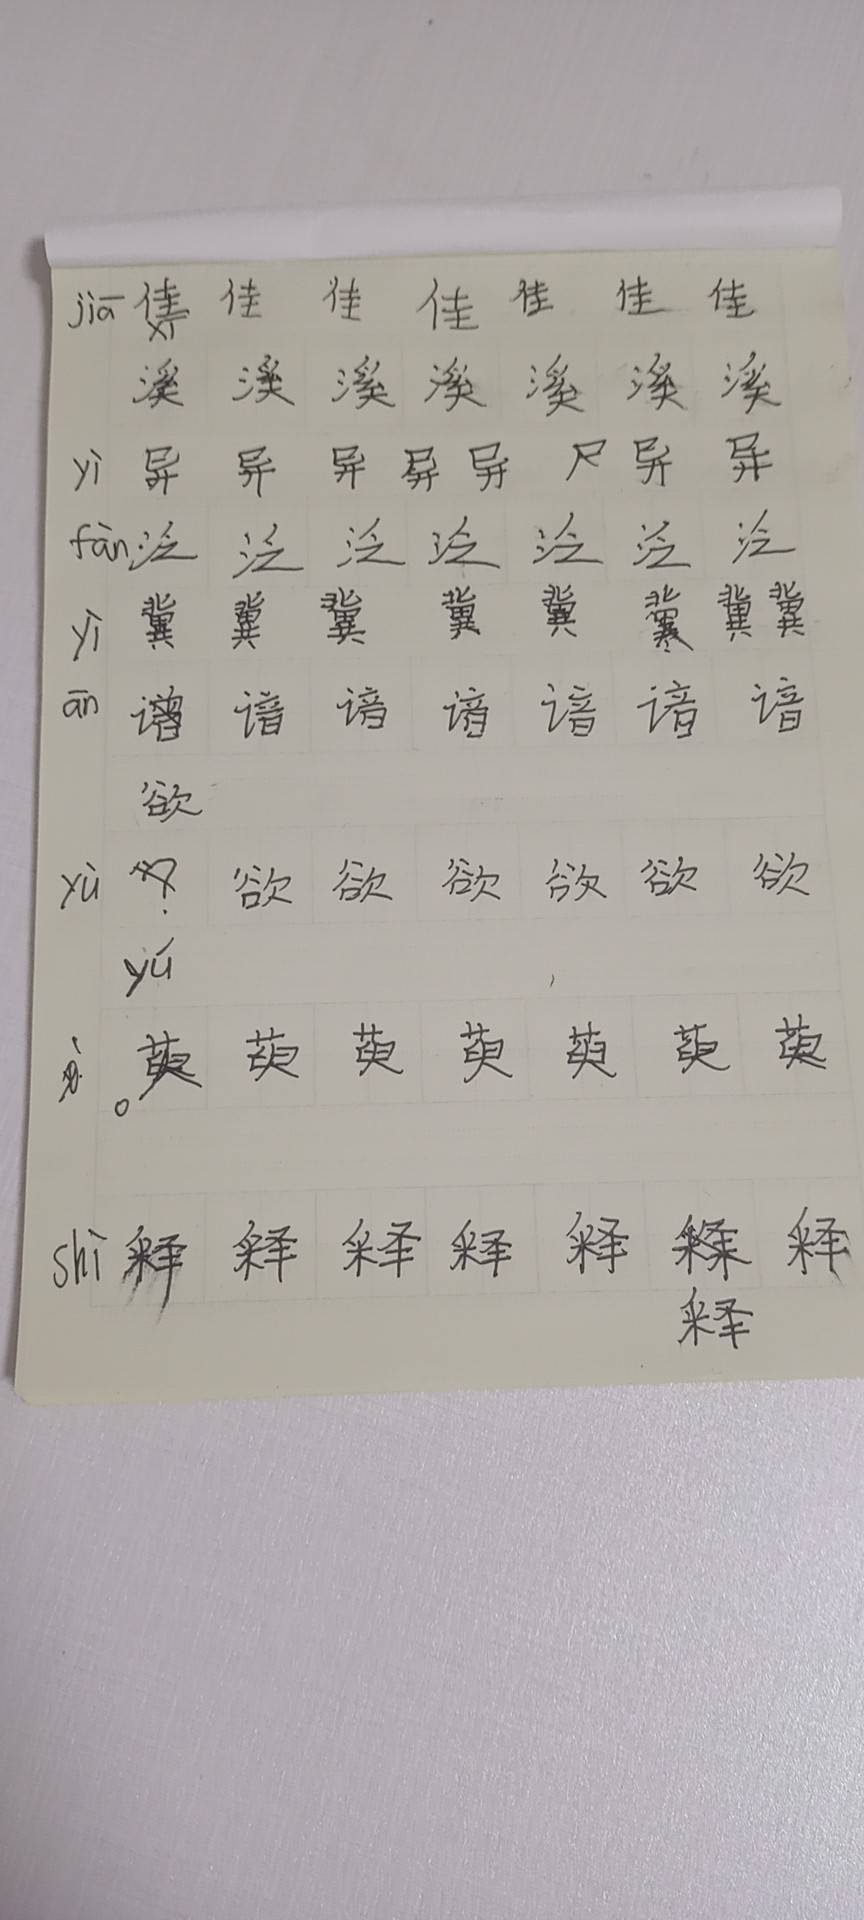 jiā 佳 佳 佳 佳 佳 佳 佳
xī
溪 溪 溪 溪 溪 溪 溪
yì 异 异 异 异 异 尸 异 异
fàn 泛 泛 泛 泛 泛 泛 泛
yì 冀 冀 冀 冀 冀 冀 冀 冀
ān 谙 谙 谙 谙 谙 谙 谙
欲
yù ? 欲 欲 欲 欲 欲 欲
yú
萸 萸 萸 萸 萸 萸 萸
shì 释 释 释 释 释 释
释